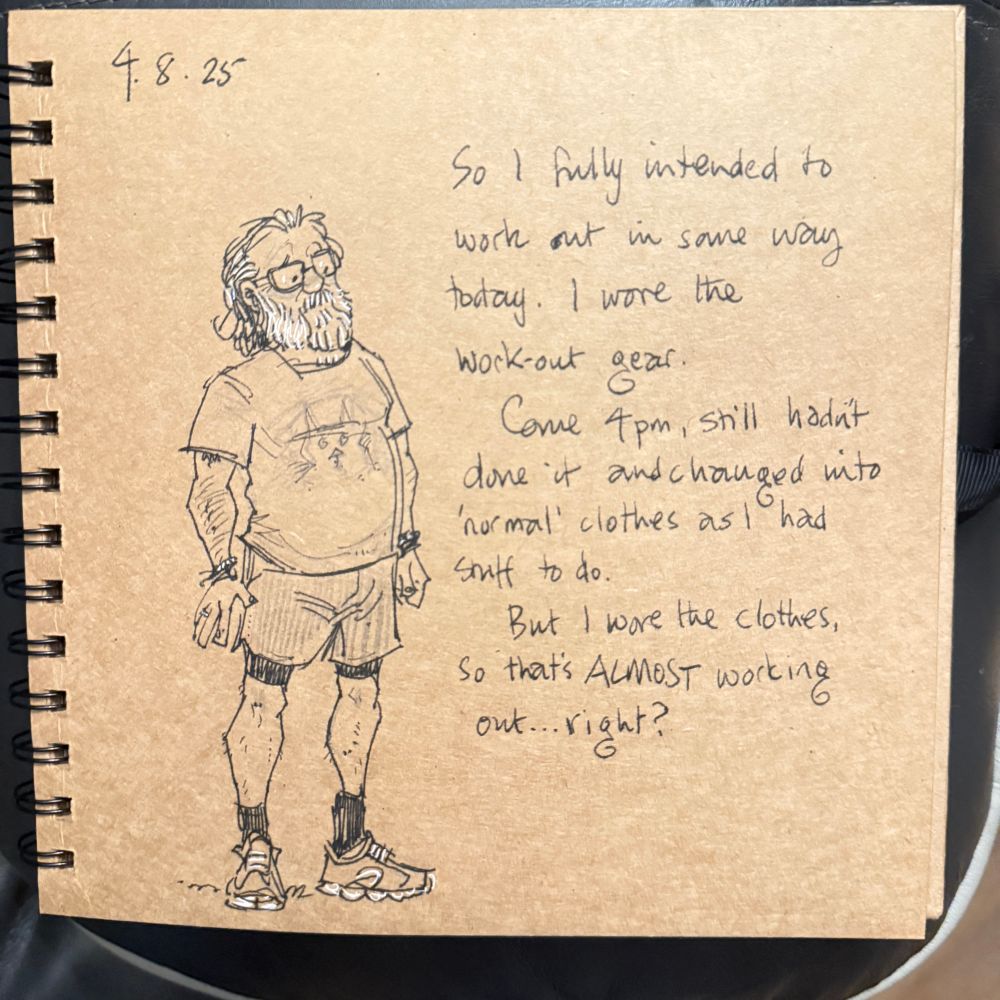 4.8.25
So I fully intended to
work out in some way
today. I wore the
work-out gear.
Come 4pm, still hadn't
done it and changed into
'normal' clothes as I had
stuff to do.
But I wore the clothes,
so that's ALMOST working
out...right?